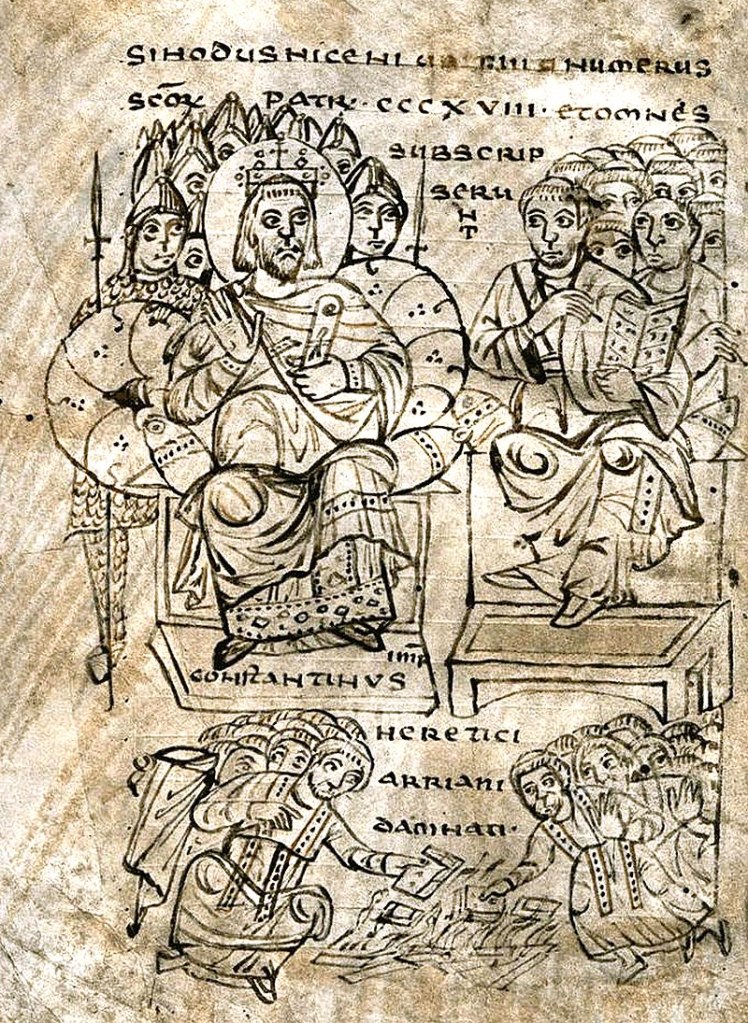 SINODUS NICENI NUMERUS
SCŌR PATR· CCCXVIII· ET OMNES
SUBSCRIP
SERU
N
T
IMP̄
CONSTANTINUS
HERETICI
ARRIANI
DAMNATI·